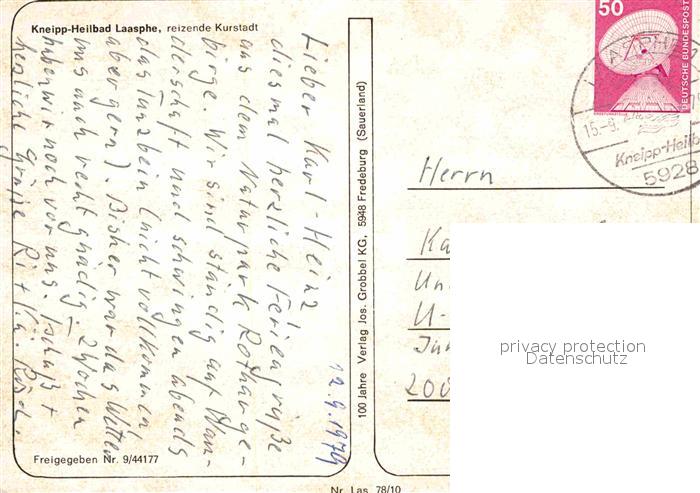 Kneipp-Heilbad Laasphe, reizende Kurstadt
Lieber Karl-Heinz
diesmal herzliche Feriengrüße
aus dem Naturpark Rothaarge-
birge. Wir sind ständig auf Wan-
derschaft und schwingen abends
das Tanzbein (nicht vollkommen
aber gern). Bisher war das Wetter
uns auch recht gnädig. 2 Wochen
haben wir noch vor uns. Tschüß +
herzliche Grüße Ri +
12.9.1979
Freigegeben Nr. 9/44177
100 Jahre Verlag Jos. Grobbel KG, 5948 Fredeburg (Sauerland)
Nr. Las 78/10
50
DEUTSCHE BUNDESPOST
15.-9.
Kneipp-Heilb
5928
Herrn
Ka
Un
U-
200
privacy protection
Datenschutz